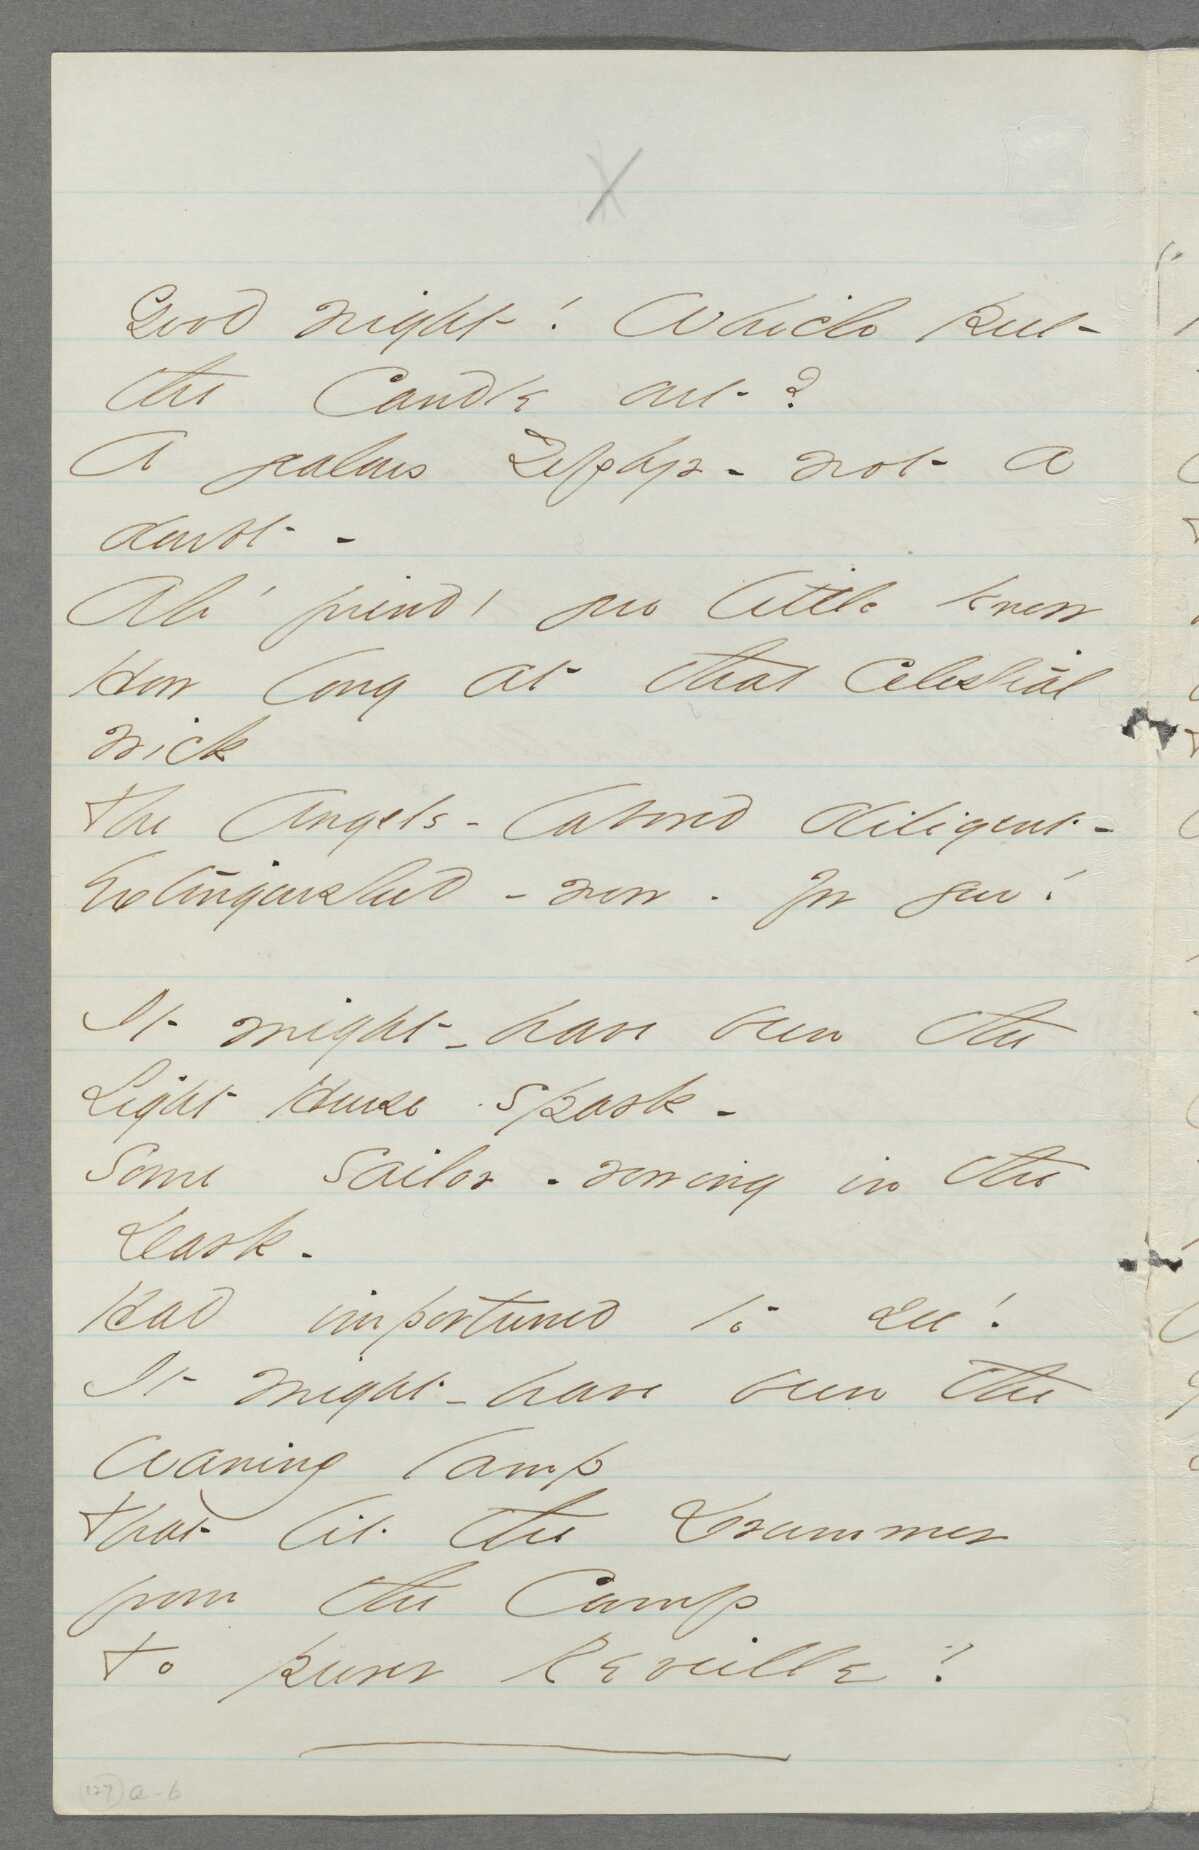 Good night! Which put
the Candle out?
A jealous Zephyr - not a
doubt -
Ah! friend! you little knew
How long at that Celestial
wick
The Angels - labored diligent -
Extinguished - now - for you!
It might - have been the
Light House Spark -
Some Sailor - rowing in the
Dark -
Had importuned to see!
It might - have been the
waning lamp
That lit the Drummer
from the Camp
To purer Reveille!
127 a-b